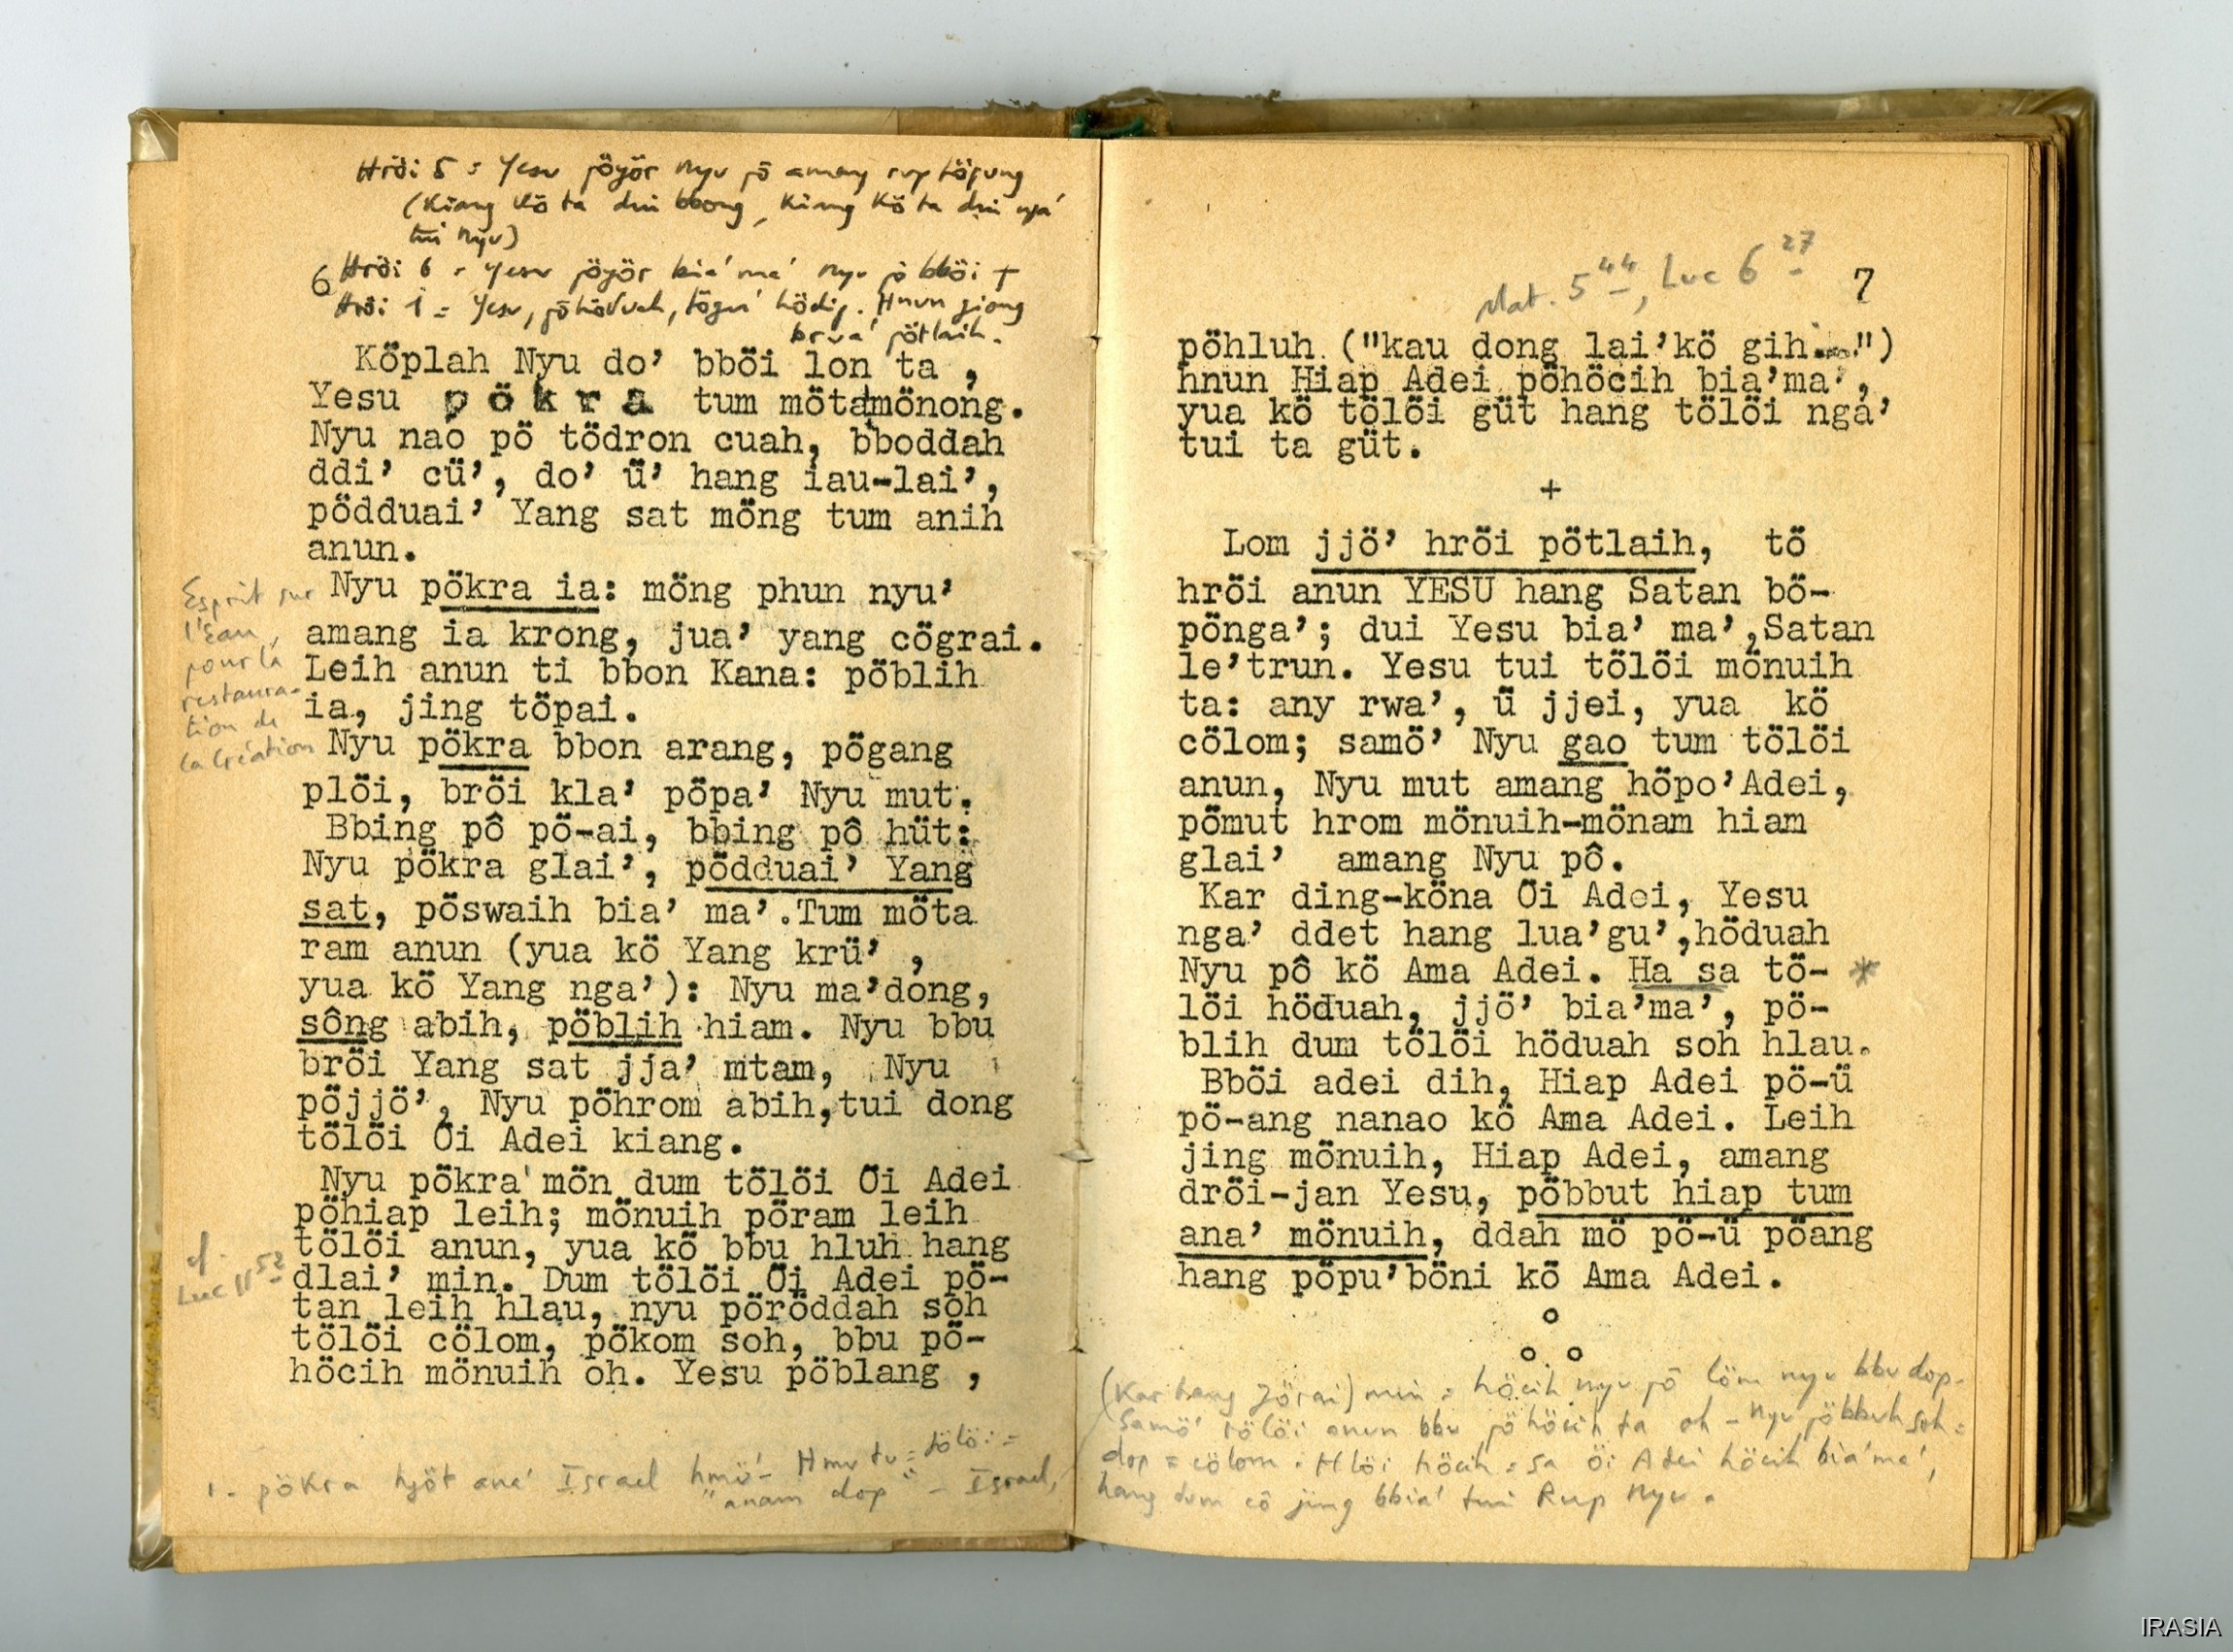 Hröi 5 = Yesu pöjör Nyu pô amang rup töpung
(Kiang kö ta dui bbong, kiang kö ta dui nga'
tui Nyu)
6
Hröi 6 = Yesu pöjör bia' ma' Nyu pô bböi +
Hröi 1 = Yesu, pöhödruah, tögu' hödip. Hnun giong
brua' pötlaih.
Köplah Nyu do' bböi lon ta ,
Yesu pökra tum mötamönong.
Nyu nao pö tödron cuah, bboddah
ddi' cü', do' ü' hang iau-lai',
pödduai' Yang sat möng tum anih
anun.
Nyu pökra ia: möng phun nyu'
amang ia krong, jua' yang cögrai.
Leih anun ti bbon Kana: pöblih
ia, jing töpai.
Nyu pökra bbon arang, pögang
plöi, bröi kla' pöpa' Nyu mut.
Bbing pô pö-ai, bbing pô hüt:
Nyu pökra glai', pödduai' Yang
sat, pöswaih bia' ma'. Tum möta
ram anun (yua kö Yang krü' ,
yua kö Yang nga'): Nyu ma'dong,
sông abih, pöblih hiam. Nyu bbu
bröi Yang sat jja' mtam, Nyu
pöjjö', Nyu pöhrom abih,tui dong
tölöi Öi Adei kiang.
Nyu pökra'mön dum tölöi Öi Adei
pöhiap leih; mönuih pöram leih
tölöi anun, yua kö bbu hluh hang
dlai' min. Dum tölöi Öi Adei pö-
tan leih hlau, nyu pöröddah soh
tölöi cölom, pökom soh, bbu pö-
höcih mönuih oh. Yesu pöblang ,
Esprit sur
l'eau,
pour la
restaura-
tion de
la Création
cf.
Luc 11 52
1- pökra työt ana' Israel hmü' - Hmu tu = tölöi =
"anam dop" - Israel,
Mat. 5 44, Luc 6 27
7
pöhluh ("kau dong lai'kö gih...")
hnun Hiap Adei pöhöcih bia'ma',
yua kö tölöi güt hang tölöi nga'
tui ta güt.
+
Lom jjö' hröi pötlaih, tö
hröi anun YESU hang Satan bö-
pönga'; dui Yesu bia' ma',Satan
le'trun. Yesu tui tölöi mönuih
ta: any rwa', ü jjei, yua kö
cölom; samö' Nyu gao tum tölöi
anun, Nyu mut amang höpo'Adei,
pömut hrom mönuih-mönam hiam
glai' amang Nyu pô.
Kar ding-köna Öi Adei, Yesu
nga' ddet hang lua'gu',höduah
Nyu pô kö Ama Adei. Ha sa tö- *
löi höduah, jjö' bia'ma', pö-
blih dum tölöi höduah soh hlau.
Bböi adei dih, Hiap Adei pö-ü
pö-ang nanao kö Ama Adei. Leih
jing mönuih, Hiap Adei, amang
dröi-jan Yesu, pöbbut hiap tum
ana' mönuih, ddah mö pö-ü pöang
hang pöpu'böni kö Ama Adei.
o
o o
(Kar hang Jörai) min = höcih nyu pô löm nyu bbu dop.
Samö' tölöi anun bbu pöhöcih ta oh - Nyu pöbbuh soh =
dop = cölom. Hlöi höcih = sa Öi Adei höcih bia'ma',
hang dum cö jing bbia' tui Rup Nyu.
IRASIA